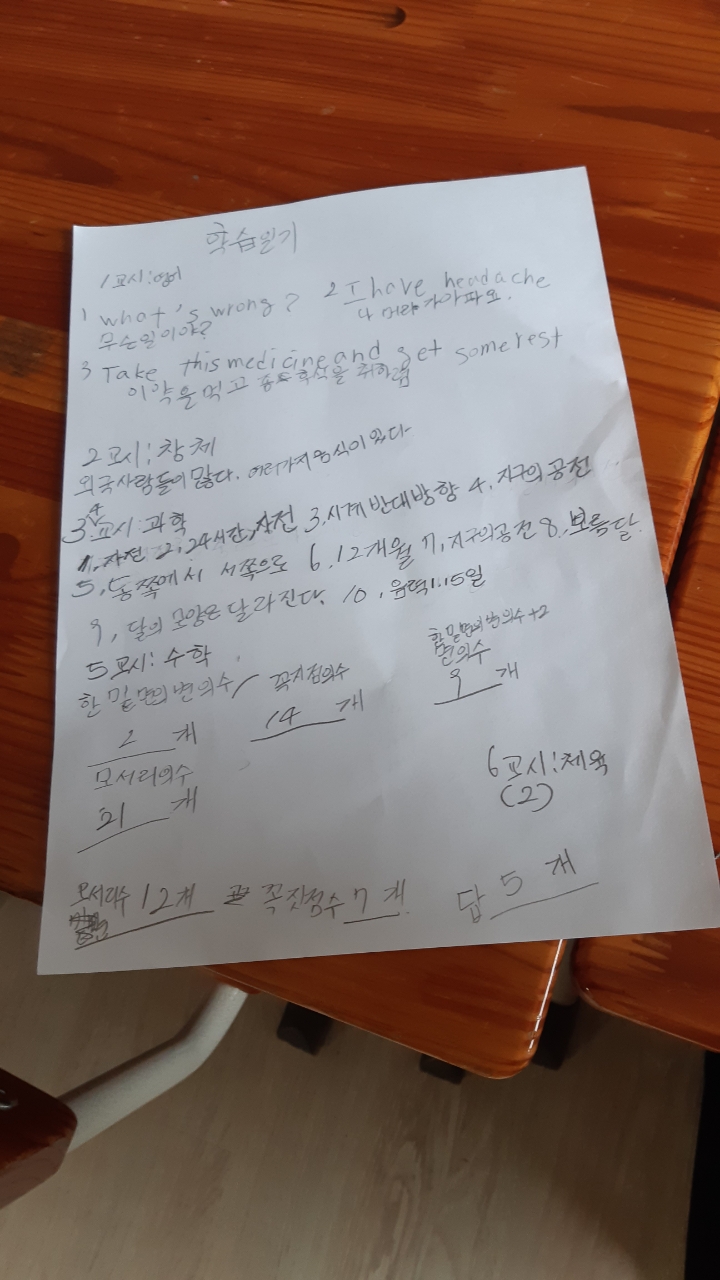 학습일기
1교시:영어
1 what's wrong? 2 I have headache
무슨일이야? 나 머리가아파요.
3 Take this medicine and get some rest
이약을먹고 휴식을 취하렴
2교시:창체
외국사람들이 많다. 여러가지음식이 있다
3,4교시:과학
1, 자전 2, 24시간, 자전 3, 시계 반대방향 4, 지구의 공전
5, 동쪽에서 서쪽으로 6, 12개월 7, 지구의공전 8, 보름달.
9, 달의 모양은 달라진다. 10, 음력1.15일
5교시: 수학
한 밑면의변의수 꼭지점의수 한 밑면의 변의수+2
면의수
2 개 14 개 9 개
모서리의수
21 개
6교시:체육
(2)
모서리수 12개 꼭짓점수 7 개. 답 5 개